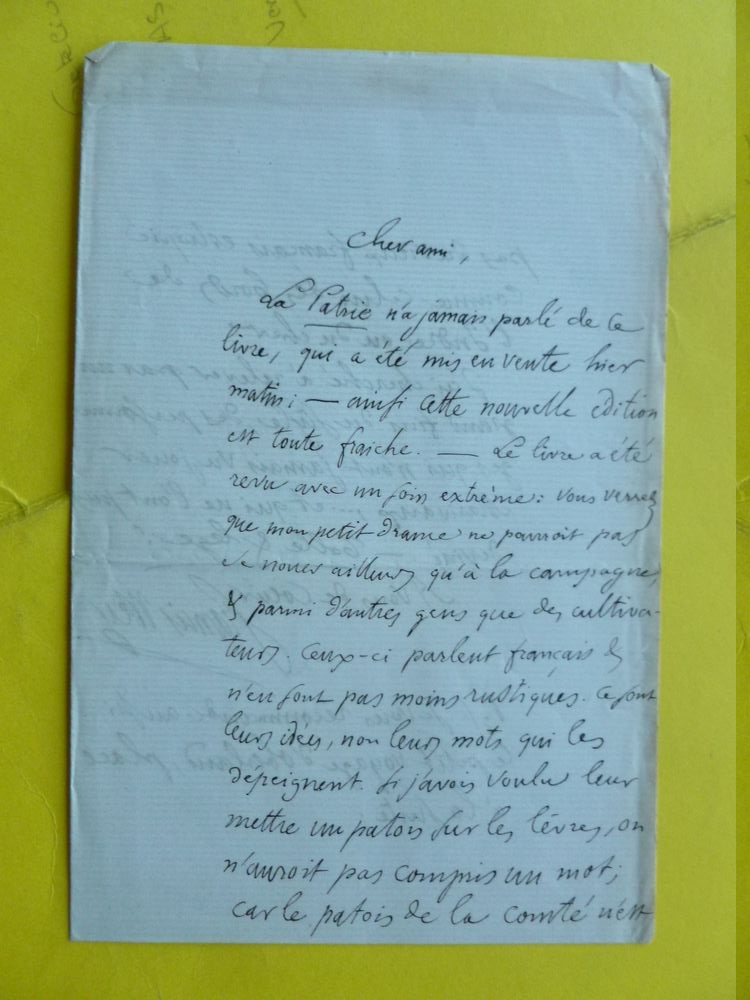 Cher ami,
La Patrie n'a jamais parlé de ce
livre, qui a été mis en vente hier
matin; — ainsi cette nouvelle édition
est toute fraiche. — Le livre a été
revu avec un soin extrême: vous verrez
que mon petit drame ne pourroit pas
se nouer ailleurs qu'à la campagne,
& parmi d'autres gens que des cultiva-
teurs. Ceux-ci parlent français &
n'en sont pas moins rustiques. Ce sont
leurs idées, non leurs mots qui les
dépeignent. Si j'avois voulu leur
mettre un patois sur les lèvres, on
n'auroit pas compris un mot;
car le patois de la comté n'est